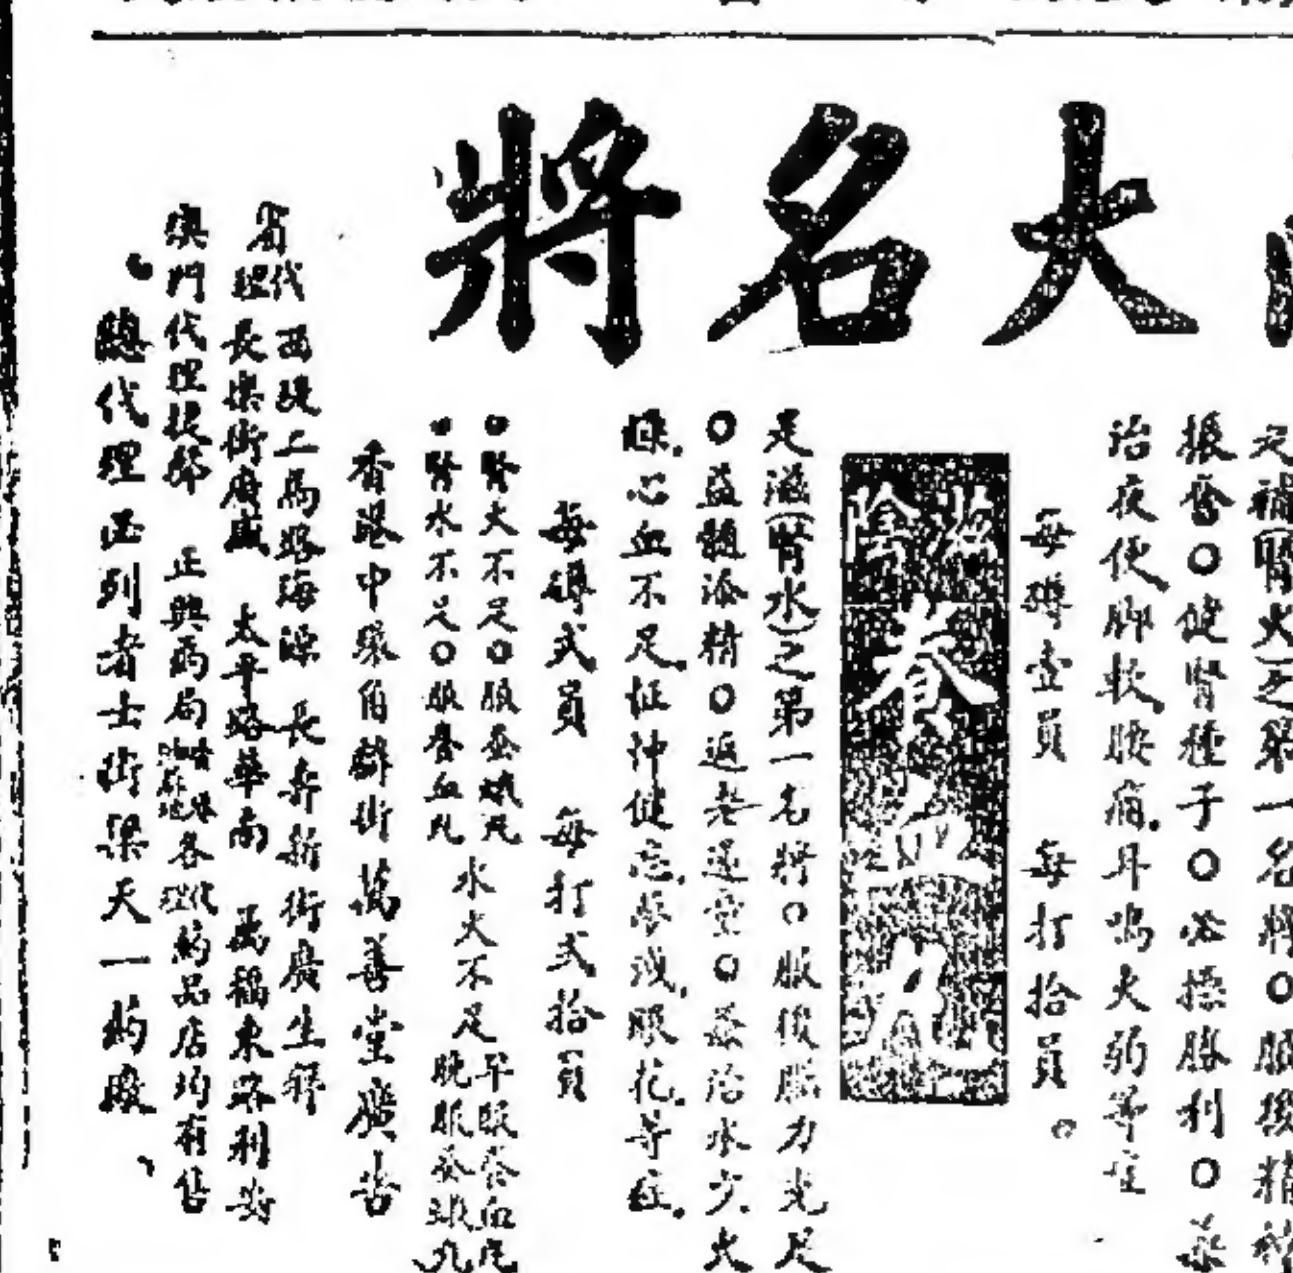 大名將
之補(腎火)之第一名將○服後精神
振奮○健腎種子○必操勝利○兼
治夜便脚軟腰痛耳鳴火弱等症
每罇壹員 每打拾員。
滋陰養
足滋(腎水)之第一名將○服後腦力充足
○益髓添精○返老還童○兼治水亏火
燥心血不足怔忡健忘夢洩眼花等症
每罇式員 每打式拾員
腎火不足○服蚕蛾丸
腎水不足○服養血丸
水火不足
早服養血丸
晚服蚕蛾丸
香港中環自辟街萬善堂廣告
省代理
西堤二馬路海源 長壽新街廣生舒
長樂街廣盛 太平路華南 萬福東路利安
澳門代理板部 正興葯局 各埠葯品店均有售
總代理西列者士街梁天一葯廠